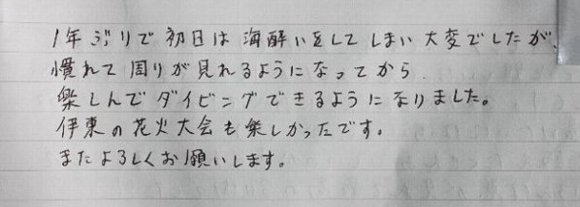 1年ぶりで初日は海酔いをしてしまい大変でしたが、
慣れて周りが見れるようになってから
楽しんでダイビングできるようになりました。
伊東の花火大会も楽しかったです。
またよろしくお願いします。